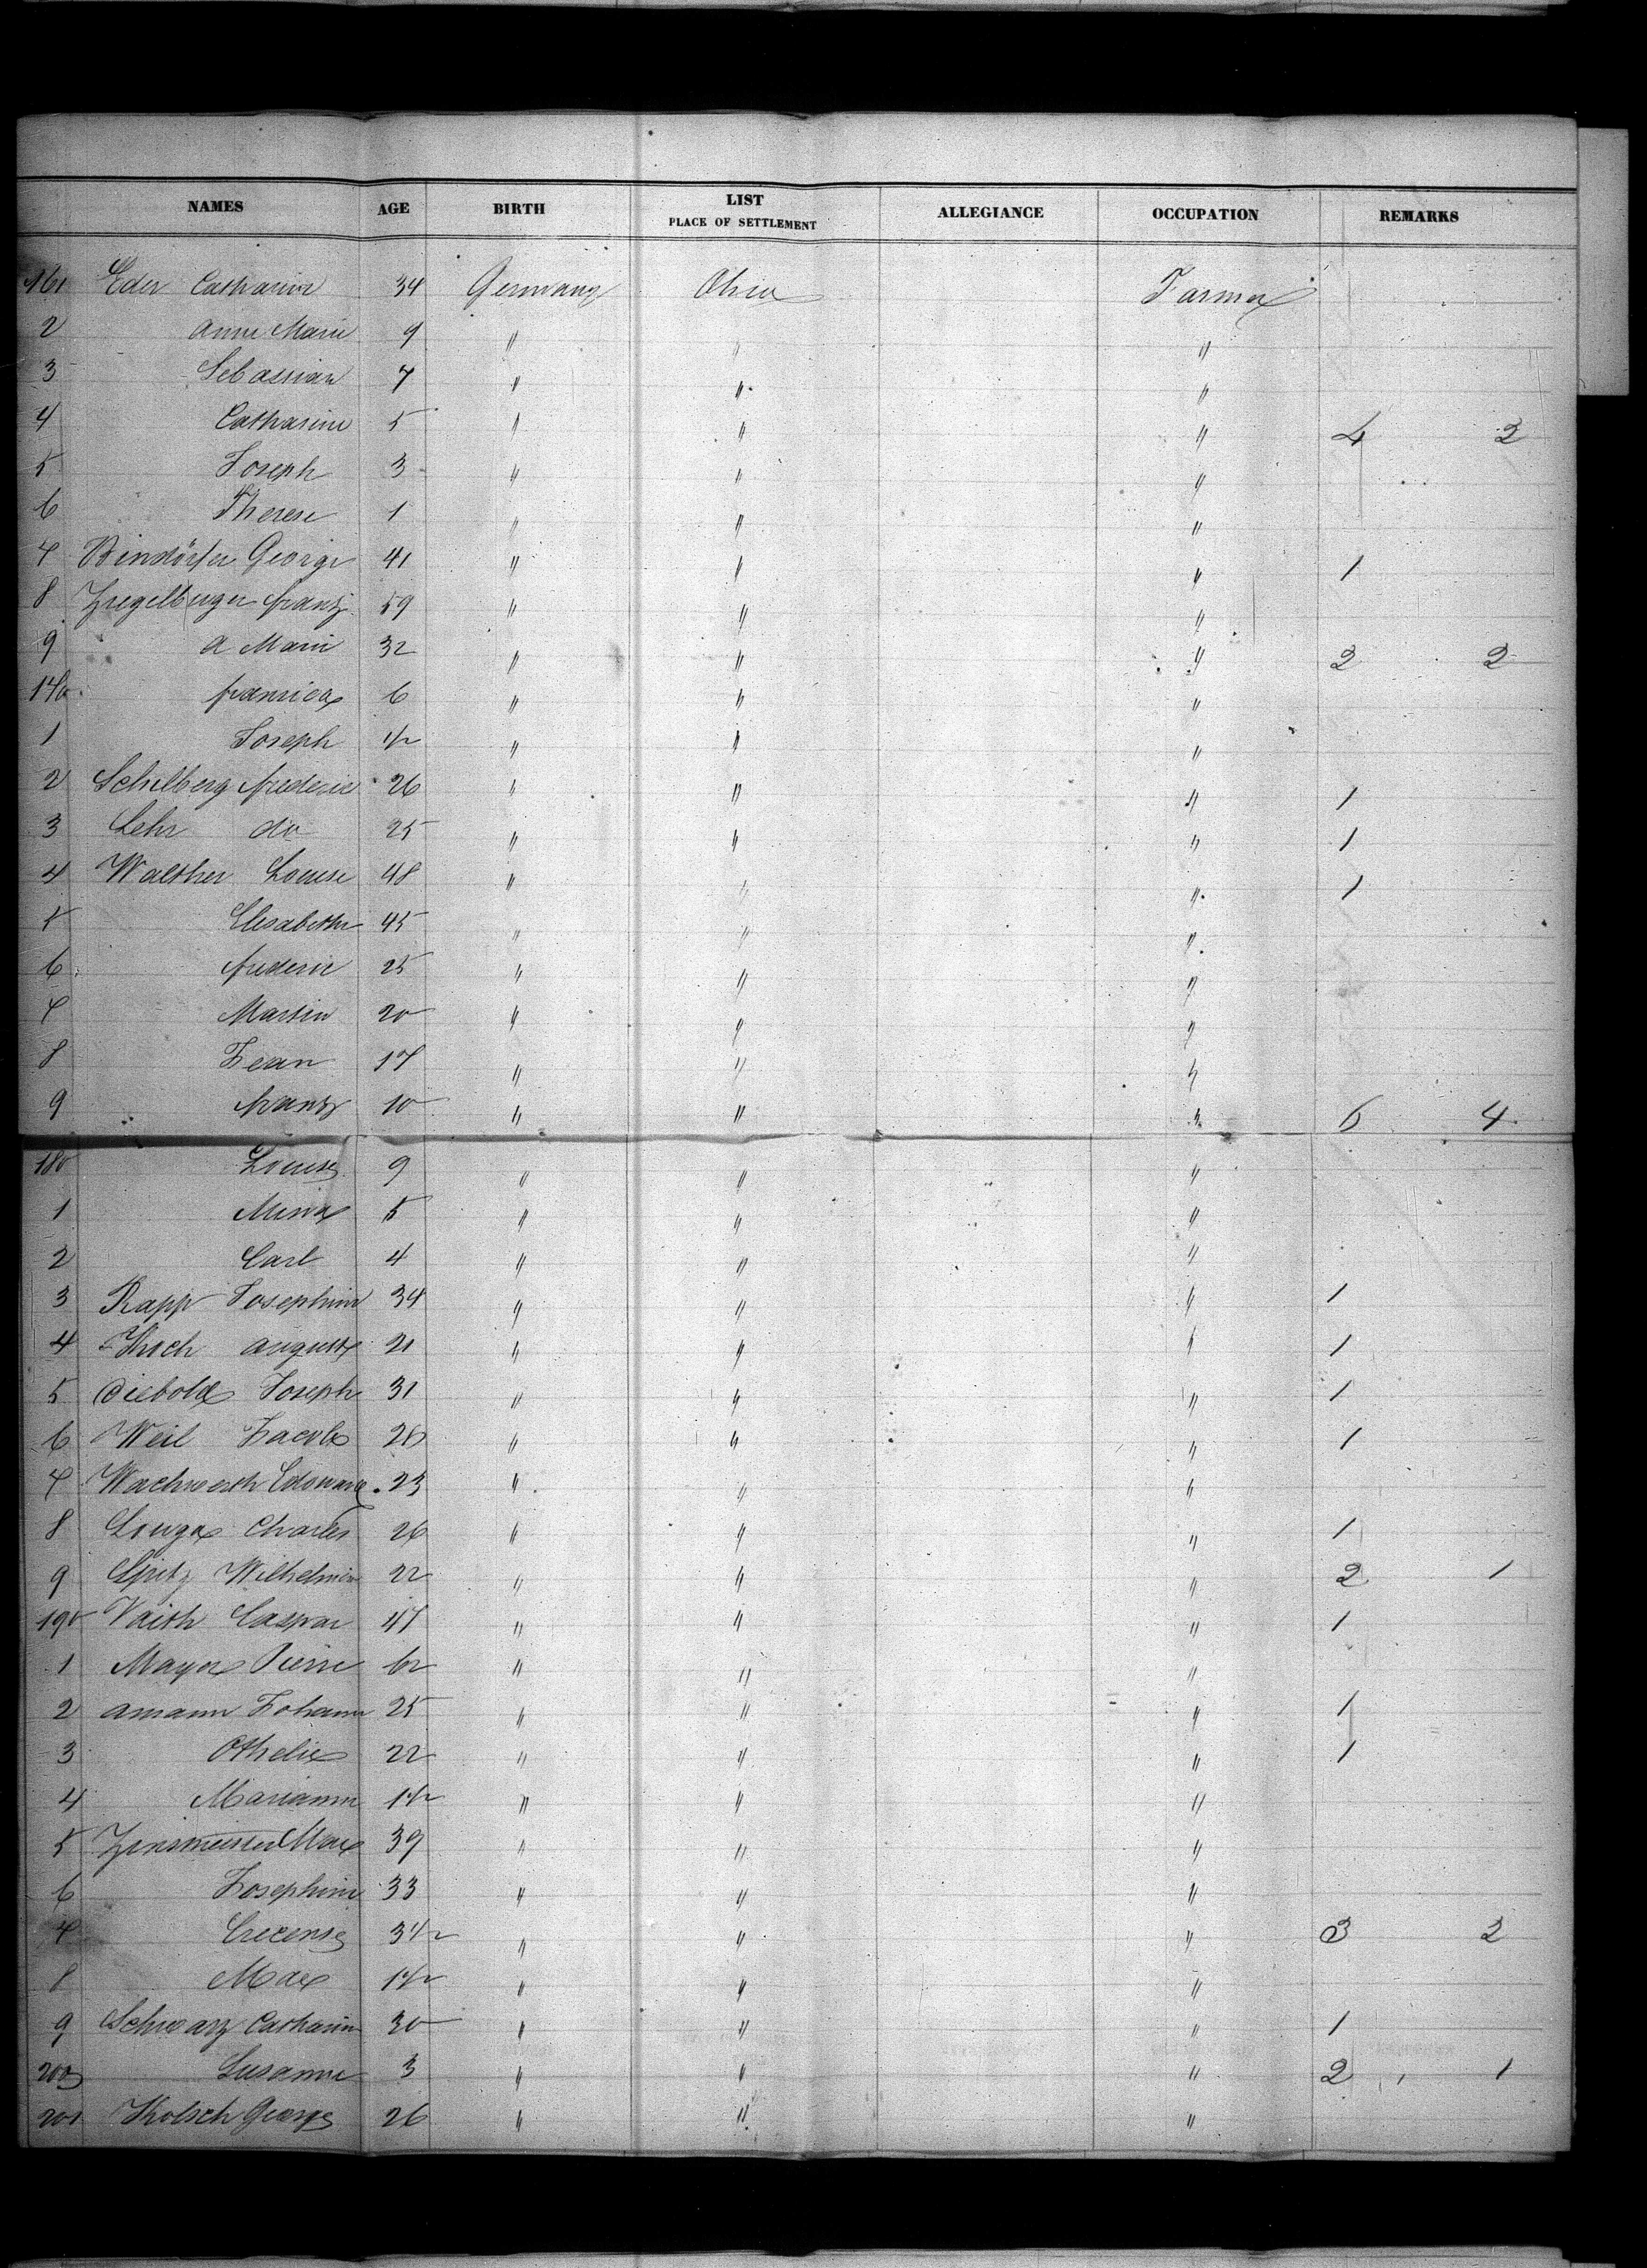 NAMES AGE BIRTH LIST PLACE OF SETTLEMENT ALLEGIANCE OCCUPATION REMARKS
161 Eder Catharine 34 Germany Ohio Farmer
2 Anne Marie 9 " " "
3 Sebassian 7 " " "
4 Catharine 5 " " " 4 2
5 Joseph 3 " " "
6 Therese 1 " " "
7 Bindörfer George 41 " " " 1
8 Ziegelberger franz 59 " " "
9 A Marie 32 " " " 2 2
170 francica 6 " " "
1 Joseph 1/2 " " "
2 Schilberg frederic 26 " " " 1
3 Lehr do 25 " " " 1
4 Walther Louise 48 " " " 1
5 Elisabethe 45 " " "
6 frederic 25 " " "
7 Martin 20 " " "
8 Jean 17 " " "
9 franz 10 " " " 6 4
180 Louise 9 " " "
1 Mina 5 " " "
2 Carl 4 " " "
3 Rapp Josephine 34 " " " 1
4 Kuch auguste 21 " " " 1
5 Diebold Joseph 31 " " " 1
6 Weil Jacob 26 " " " 1
7 Wachwerth Edouard 23 " " "
8 Louga Charles 26 " " " 1
9 Spitz Wilhelmine 22 " " " 2 1
190 Vaith Caspar 47 " " " 1
1 Mayer Pierre 62 " " "
2 Amann Johann 25 " " " 1
3 Othelie 22 " " " 1
4 Marianne 1 1/2 " " "
5 Zinsmeister Max 39 " " "
6 Josephine 33 " " "
7 Crecense 3 1/2 " " " 3 2
8 Max 1 1/2 " " "
9 Schwarz Catharine 30 " " " 1
200 Susanne 3 " " " 2 1
201 Kolsch George 26 " " "